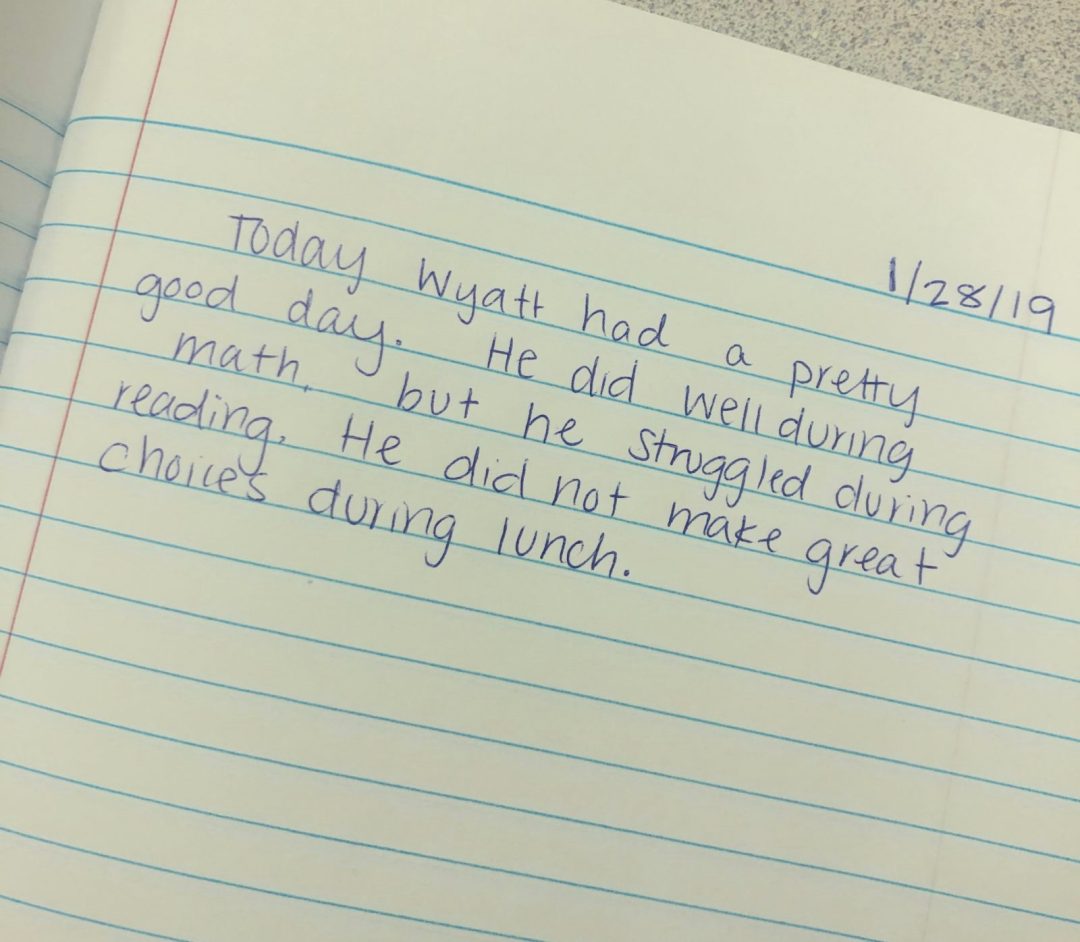 1/28/19
Today Wyatt had a pretty
good day. He did well during
math, but he struggled during
reading. He did not make great
choices during lunch.